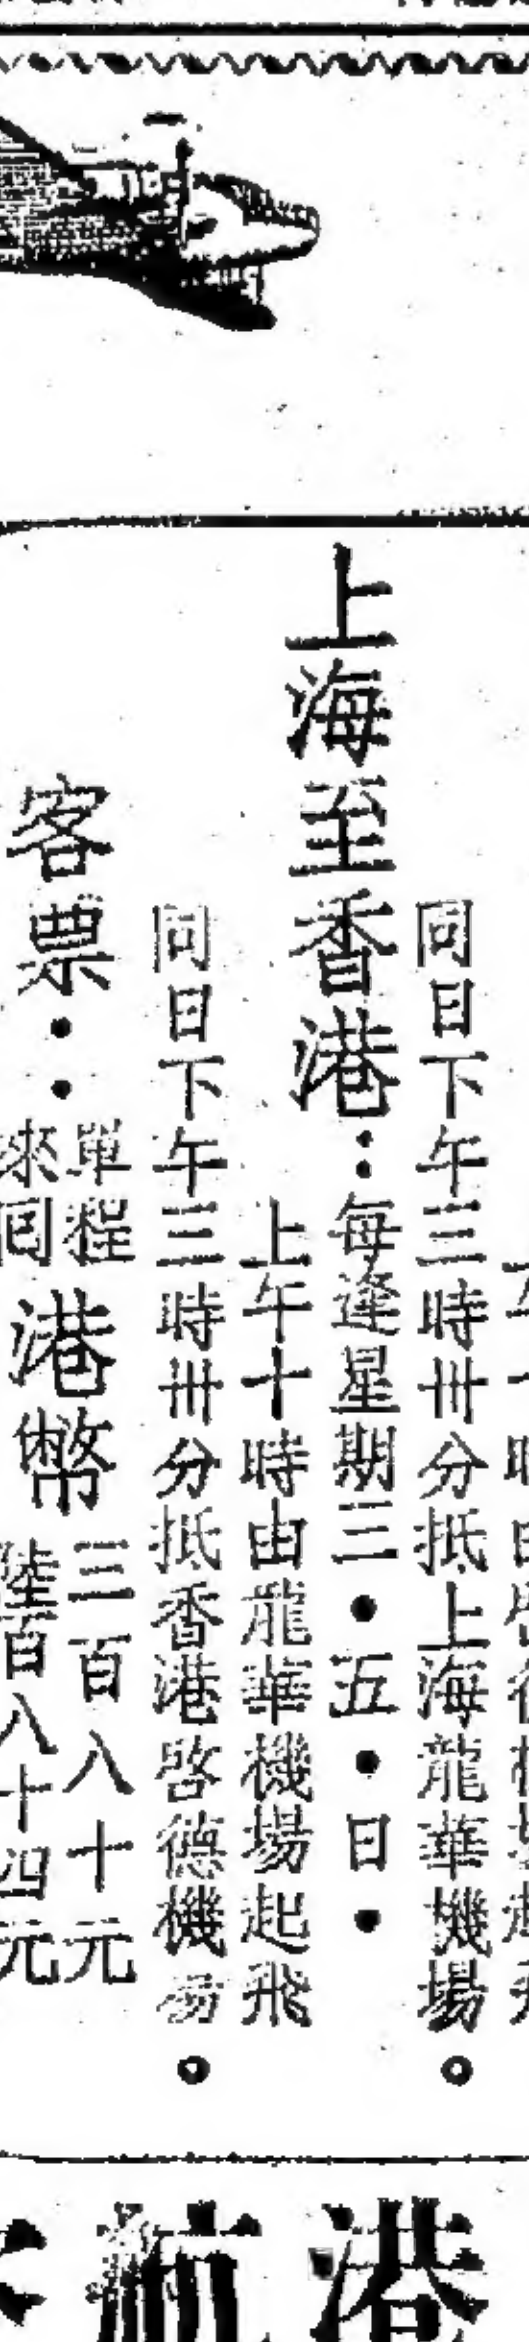 同日下午三時卅分抵上海龍華機場。
上海至香港：每逢星期三•五•日•
上午十時由龍華機場起飛
同日下午三時卅分抵香港啓德機場。
客票：單程 港幣 三百八十元
來回 陸百八十四元
港航